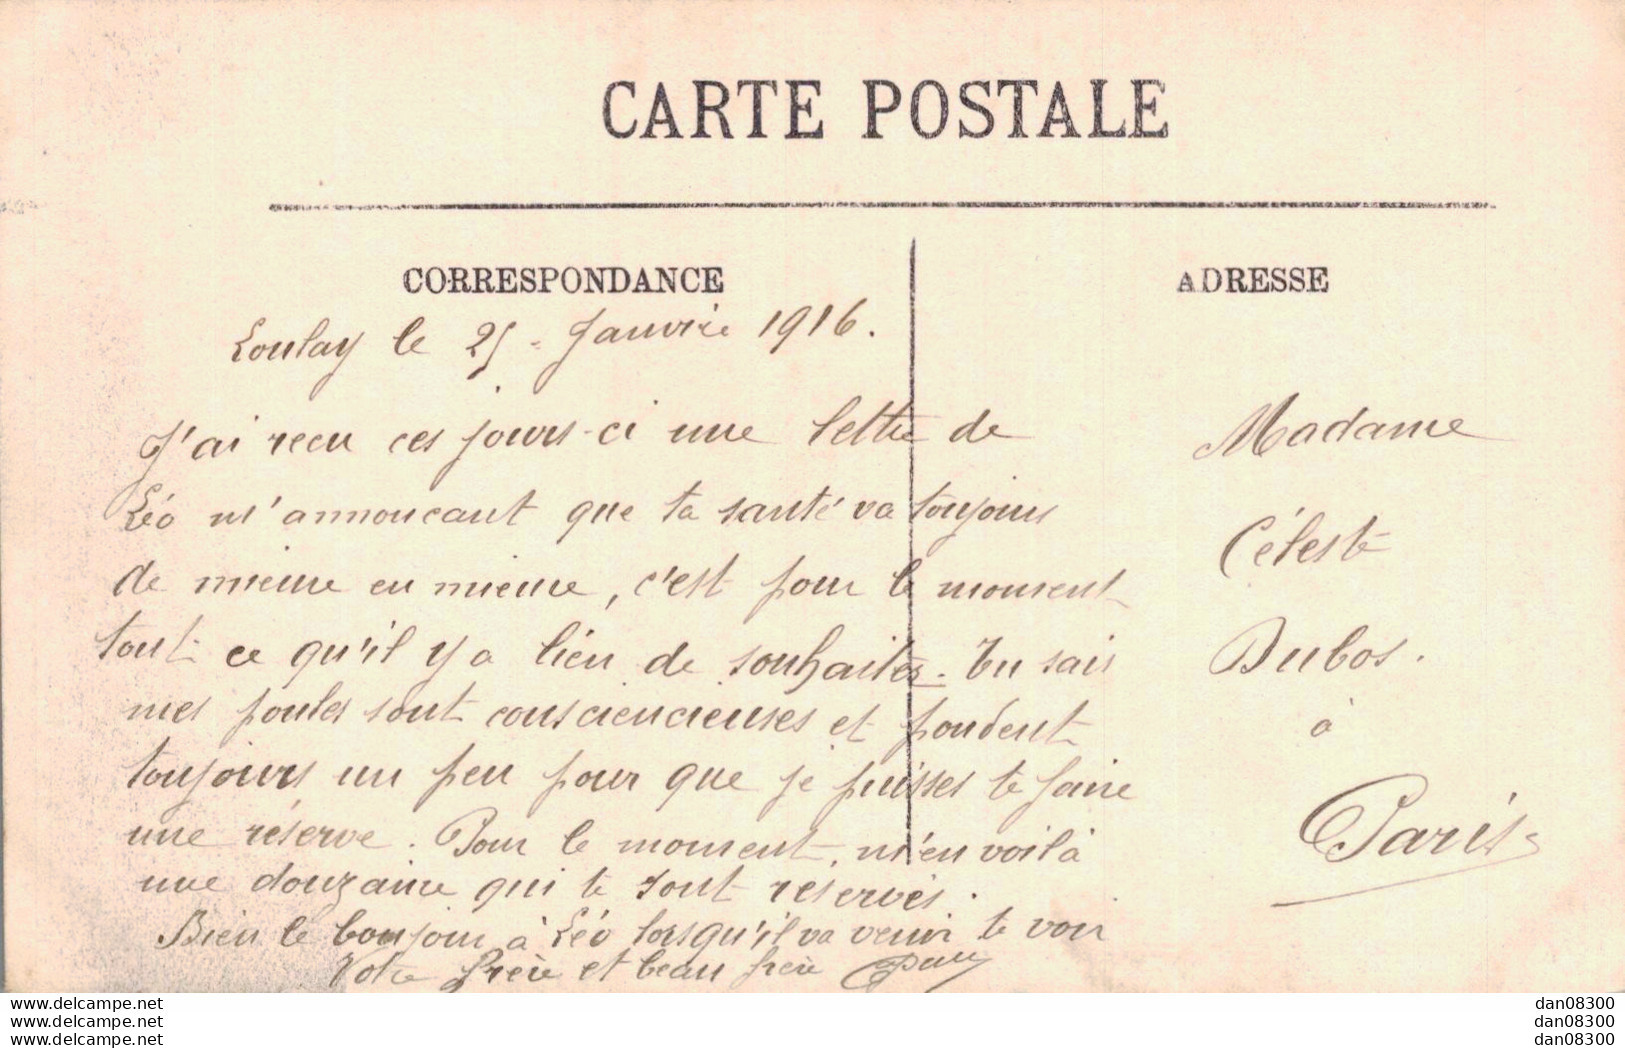 CARTE POSTALE
CORRESPONDANCE
ADRESSE
Loulay le 25 - Janvrie 1916.
J'ai recu ces jours-ci une lettre de
Léo m'annoncant que ta santé va toujours
de mieux en mieux, c'est pour le moment
tout ce qu'il y a lieu de souhaiter. Tu sais
mes poules sont consciencieuses et pondent
toujours un peu pour que je puisses te faire
une réserve. Pour le moment, m'en voilà
une douzaine qui te sont réservés.
Bien le bonjour à Léo lorsqu'il va venir te voir
Votre frère et beau frère
Madame
Céleste
Dubos.
à
Paris
www.delcampe.net
www.delcampe.net
www.delcampe.net
dan08300
dan08300
dan08300